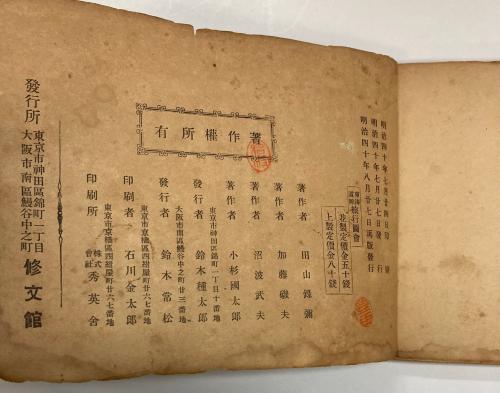 明治四十年七月廿四日印刷
明治四十年七月廿七日發行
明治四十年八月廿七日再版發行
旅行圖會
並製定價金五十錢
上製定價金八十錢
著作者 田山錄彌
著作者 加藤磤夫
著作者 沼波武夫
著作者 小杉國太郎
東京市神田區錦町一丁目十番地
發行者 鈴木種太郎
大阪市南區鰻谷中之町廿三番地
發行者 鈴木常松
東京市京橋區西紺屋町廿六七番地
印刷者 石川金太郎
東京市京橋區西紺屋町廿六七番地
印刷所 株式會社 秀英舍
著作權所有
發行所 東京市神田區錦町一丁目
大阪市南區鰻谷中之町
修文館